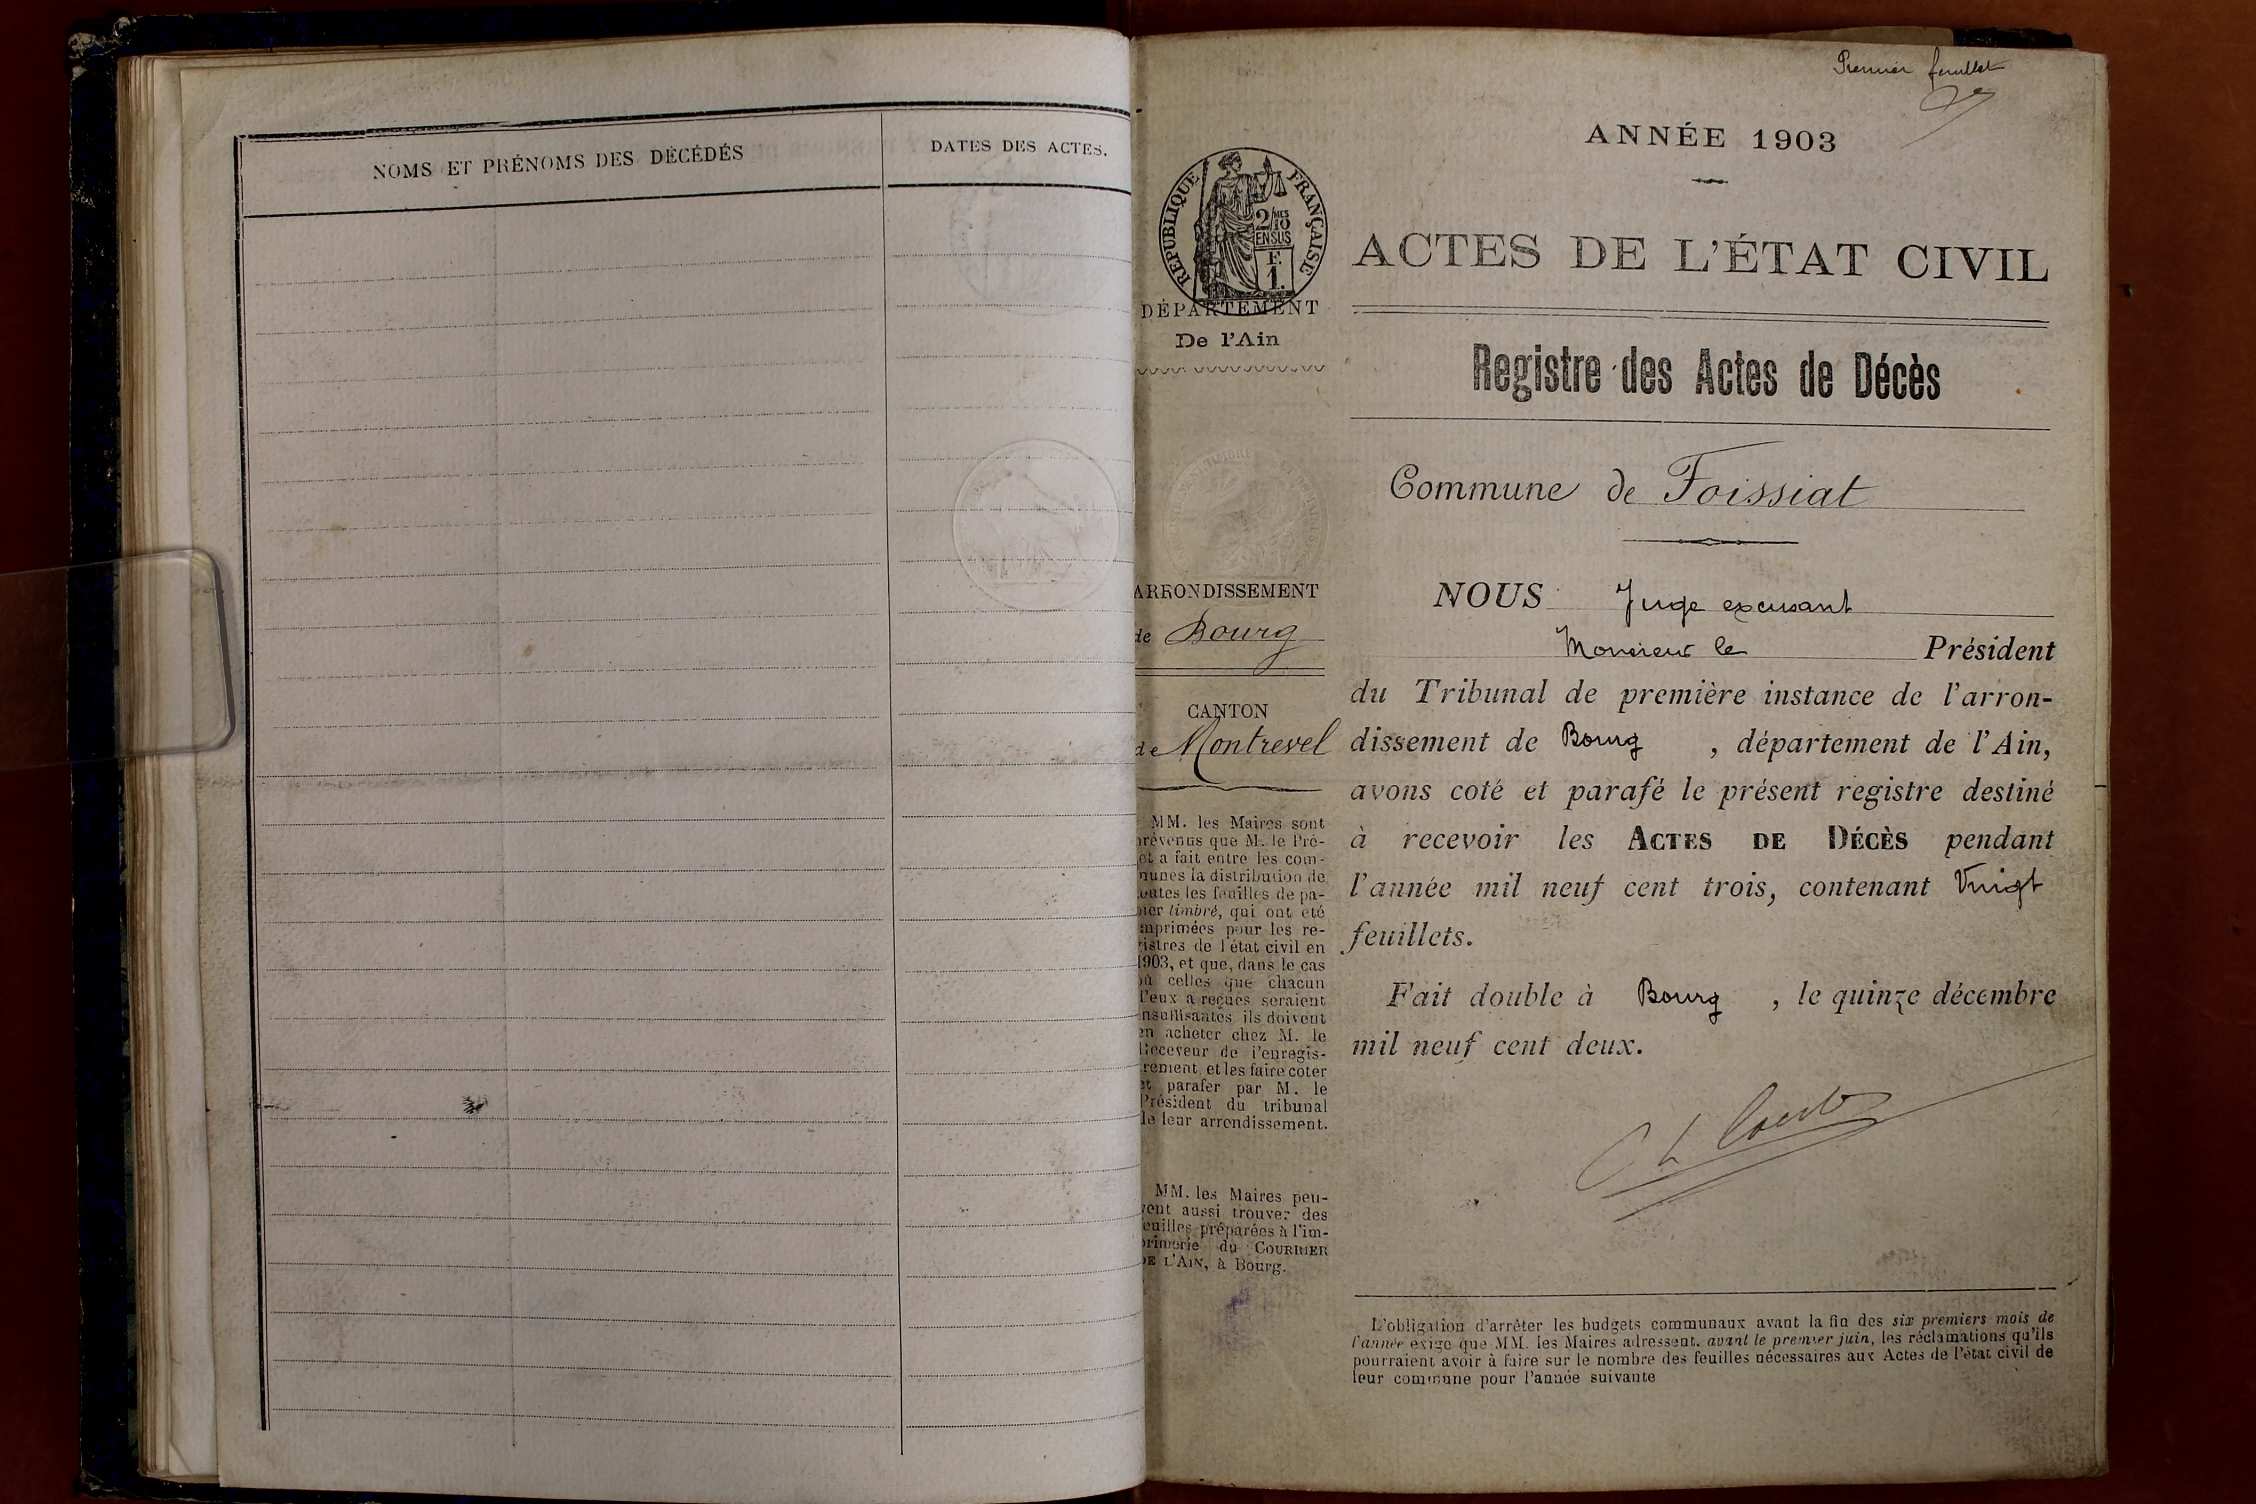 NOMS ET PRÉNOMS DES DÉCÉDÉS
DATES DES ACTES.
Premier feuillet
ANNÉE 1903
RÉPUBLIQUE FRANÇAISE
2/10 MES
EN SUS
F.
1.
DÉPARTEMENT
De l'Ain
ARRONDISSEMENT
de Bourg
CANTON
de Montrevel
MM. les Maires sont
prévenus que M. le Pré-
fet a fait entre les com-
munes la distribution de
toutes les feuilles de pa-
pier timbré, qui ont été
imprimées pour les re-
gistres de l'état civil en
1903, et que, dans le cas
où celles que chacun
d'eux a reçues seraient
insuffisantes ils doivent
en acheter chez M. le
Receveur de l'enregis-
trement, et les faire coter
et parafer par M. le
Président du tribunal
de leur arrondissement.
MM. les Maires peu-
vent aussi trouver des
feuilles préparées à l'im-
primerie du COURRIER
DE L'AIN, à Bourg.
ACTES DE L'ÉTAT CIVIL
Registre des Actes de Décès
Commune de Foissiat
NOUS Juge excusant
Monsieur le Président
du Tribunal de première instance de l'arron-
dissement de Bourg , département de l'Ain,
avons coté et parafé le présent registre destiné
à recevoir les ACTES DE DÉCÈS pendant
l'année mil neuf cent trois, contenant Vingt
feuillets.
Fait double à Bourg , le quinze décembre
mil neuf cent deux.
L'obligation d'arrêter les budgets communaux avant la fin des six premiers mois de
l'année exige que MM. les Maires adressent, avant le premier juin, les réclamations qu'ils
pourraient avoir à faire sur le nombre des feuilles nécessaires aux Actes de l'état civil de
leur commune pour l'année suivante